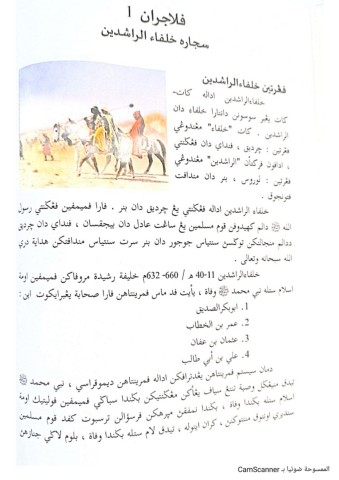 فلاجران 1
سجاره خلفاء الراشدين
فڠرتين خلفاءالراشدين
خلفاءالراشدين اداله كات-
كات يڠبر سوسونن دانتارا خلفاء دان
الراشدين . كات "خلفاء" مڠندوڠي
ڤڠرتين : چرديق ، فنداي دان فڠنتي
، ادفون فركتأن "الراشدين" مڠندوڠي
ڤڠرتين : لوروس ، بنر دان مندافت
فتونجوق .
خلفاء الراشدين اداله ڤڠنتي يڠ چرديق دان بنر . ڤارا ڤميمڤين ڤڠڬنتي رسول
الله ﷺ دالم كهيدوڤن قوم مسلمين يڠ ساڠت عادل دان بيجقسان، ڤنداي دان چرديق
ددالم منجالنكن توڬسن سنتياس جوجور دان بنر سرت سنتياس مندافتكن هداية دري
الله سبحانه وتعالى .
خلفاءالراشدين 11-40 ه / 660-632م خليفة رشيدة مروفاكن ڤميمڤين اومة
اسلام ستله نبي محمد ﷺ وفاة ، يأيت ڤد ماس ڤمرينتاهن ڤارا صحابة يڠبرايكوت اين :
1. ابوبكرالصديق
2. عمر بن الخطاب
3. عثمان بن عفان
4. علي بن أبي طالب
دمان سيستم ڤمرينتاهن يڠدترافكن اداله ڤمرينتاهن ديموقراسي ، نبي محمد ﷺ
تيدق منيڠڬل وصية تنتڠ سياڤ يڠأكن مڠڬنتيكن بڬندا سباڬي ڤميمڤين ڤوليتيك اومة
اسلام ستله بڬندا وفاة ، بڬندا نمفقن مپرهكن ڤرسوالن ترسبوت كڤد قوم مسلمين
سنديري اونتوق منتوكنن ، كران ايتوله ، تيدق لام ستله بڬندا وفاة ، بلوم لاڬي جنازهن
الممسوحة ضوئيا بـ CamScanner